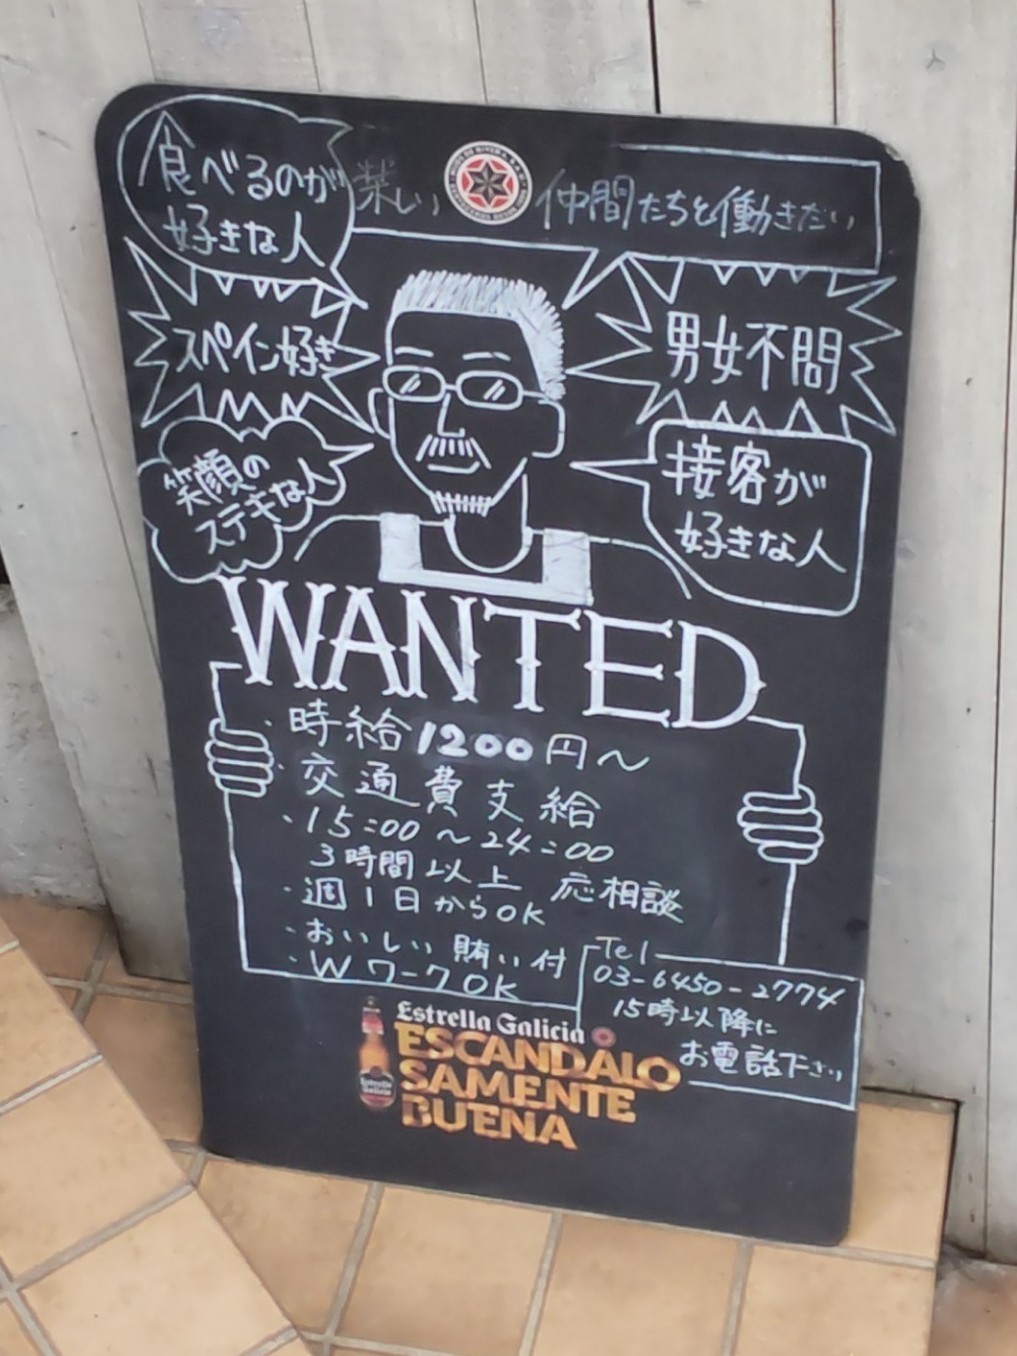 食べるのが
好きな人
楽しい 仲間たちと働きたい
スペイン好き
男女不問
笑顔の
ステキな人
接客が
好きな人
WANTED
・時給1200円～
・交通費支給
・15:00～24:00
3時間以上 応相談
・週1日からOK
・おいしい賄い付
・WワークOK
Tel
03-6450-2774
15時以降に
お電話下さい
Estrella Galicia
ESCANDALO
SAMENTE
BUENA